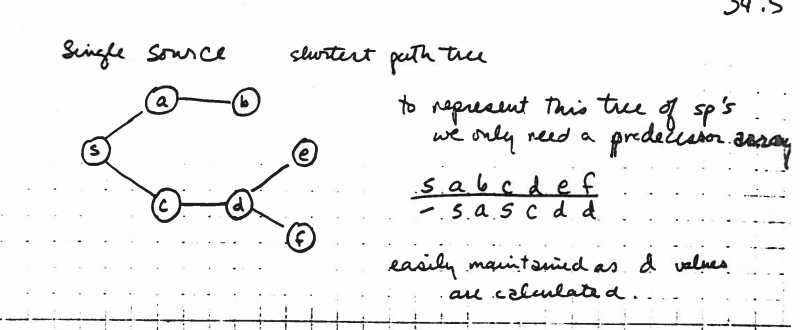 34.5
Single source shortest path tree
a b
to represent this tree of sp's
we only need a predecessor array
s
e
c d
f
s a b c d e f
– s a s c d d
easily maintained as d values
are calculated...